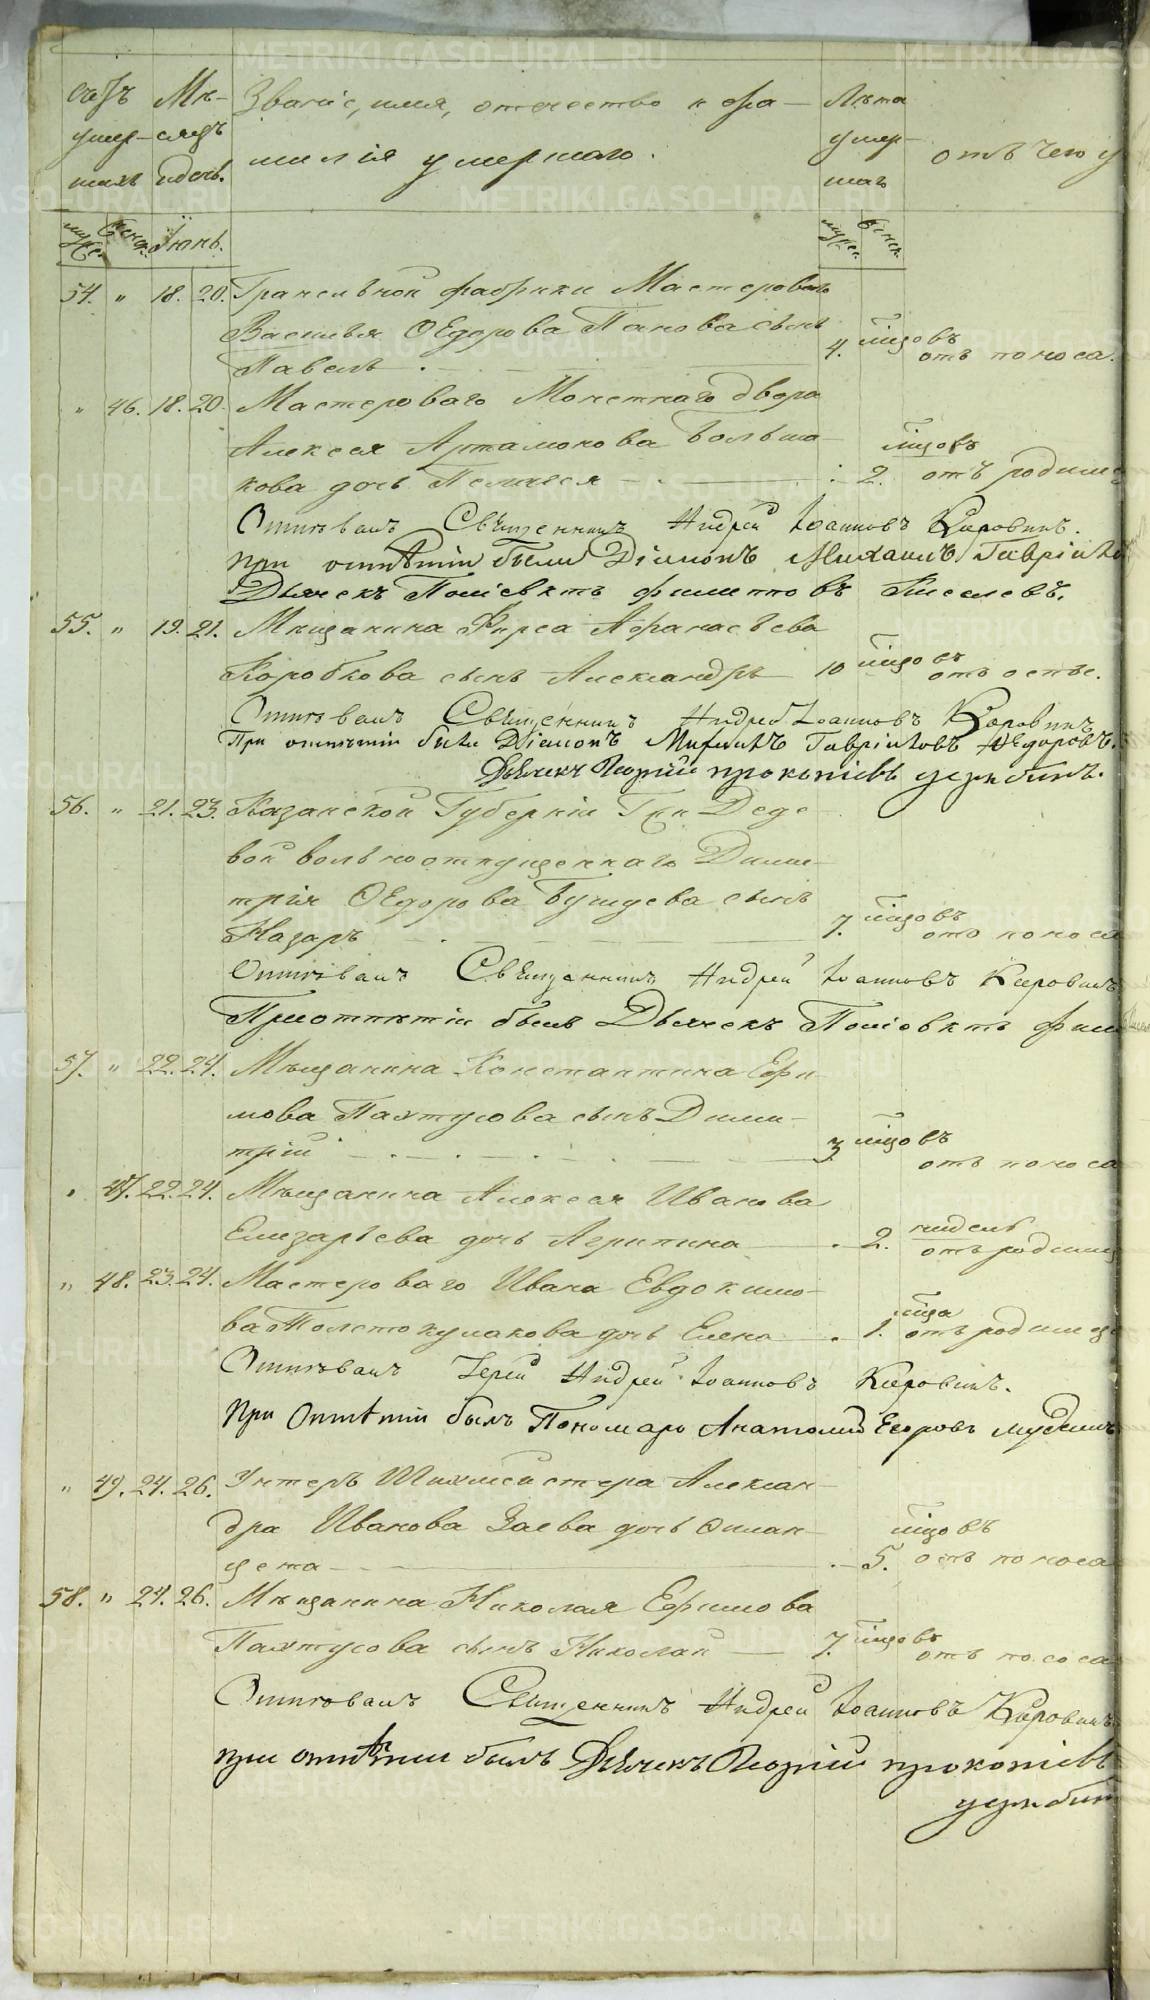 Счетъ умер-шихъ
Мѣ-сяцъ и день.
Званіе, имя, отчество и фа-
милія умершаго.
Лѣта умер-шаго
отъ чего у
муж. женс. Іюнь. муж. женс.
54. " 18. 20. Гранильной фабрики Мастероваго
Василья Ѳедорова Панова сынъ
Павелъ 4. мѣсяцовъ отъ поноса.
" 46. 18. 20. Мастероваго Монетнаго двора
Алексея Артамонова Больша-
кова дочь Пелагея 2. мѣсяцовъ отъ родимц
Отпѣвалъ Священникъ Андрей Іоанновъ Каровинъ.
при отпѣтіи были Діаконъ Михаилъ Гавріило
Дьячекъ Поліевктъ Филипповъ Киселевъ.
55. " 19. 21. Мещанина Фирса Афанасьева
Коробкова сынъ Александръ 10 мѣсяцовъ отъ оспы.
Отпѣвалъ Священникъ Андрей Іоанновъ Каровинъ
При отпѣтіи были Діаконъ Михаилъ Гавріиловъ Ѳедоровъ.
Дьячекъ Георгій Прокопіевъ
56. " 21. 23. Казанской Губерніи Гжи Деде-
вой вольноотпущеннаго Дими-
трія Ѳедорова сынъ
Назаръ 7. мѣсяцовъ отъ поноса
Отпѣвалъ Священникъ Андрей Іоанновъ Каровинъ
При отпѣтіи былъ Дьячекъ Поліевктъ Фили
57. " 22. 24. Мещанина Константина Ефи-
мова Пахтусова сынъ Дими-
трій 3. мѣсяцовъ отъ поноса
" 47. 22. 24. Мещанина Алексея Иванова
Елизарьева дочь Агрипина 2. недель отъ родимц
" 48. 23. 24. Мастероваго Ивана Евдокимо-
ва Толстокулакова дочь Елена 1. мѣсяца отъ родимца
Отпѣвалъ Іерей Андрей Іоанновъ Каровинъ.
При Отпѣтіи былъ Пономарь Анатолій Егоровъ
" 49. 24. 26. Унтеръ Шихмейстера Алексан-
дра Иванова Заева дочь Филан-
цета 5. мѣсяцовъ отъ поноса
58. " 24. 26. Мещанина Николая Ефимова
Пахтусова сынъ Николай 7. мѣсяцовъ отъ поноса
Отпѣвалъ Священникъ Андрей Іоанновъ Каровинъ
при отпѣтіи былъ Дьячекъ Георгій Прокопіевъ
METRIKI.GASO-URAL.RU